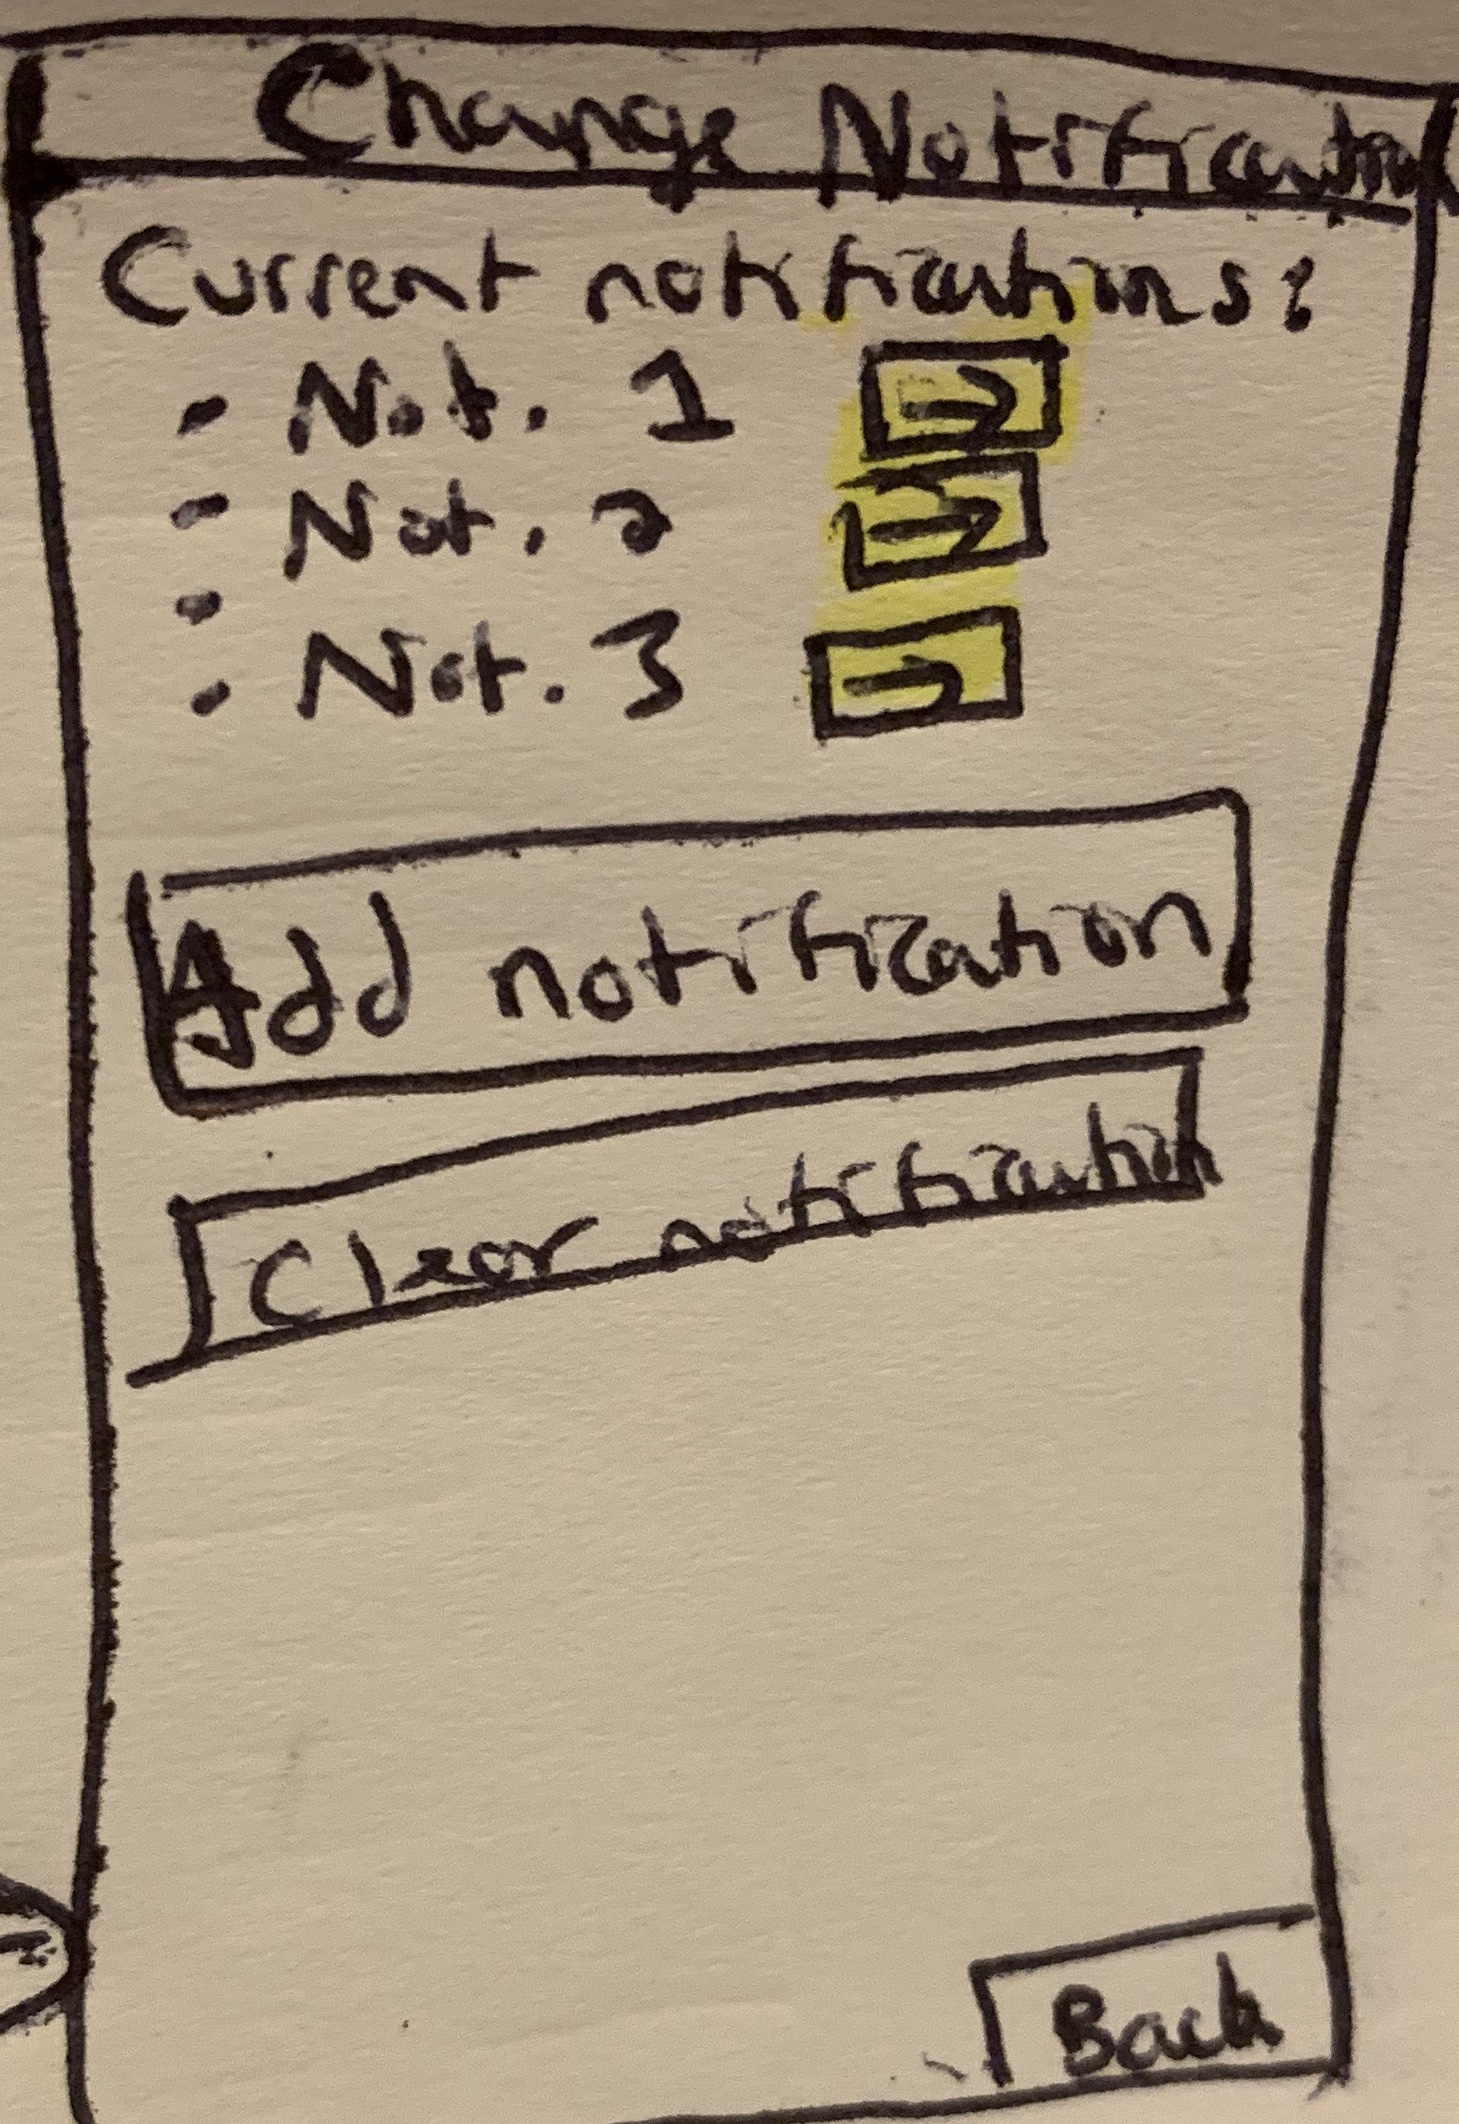 Change Notification
Current notifications:
- Not. 1 →
- Not. 2 →
-
- Not. 3 →
Add notification
Clear notification
Back